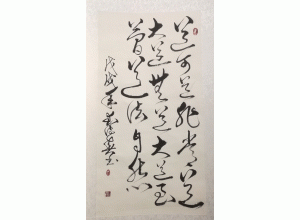 道可道非常道
大道無道大道至
簡道法自然
戊戌年書